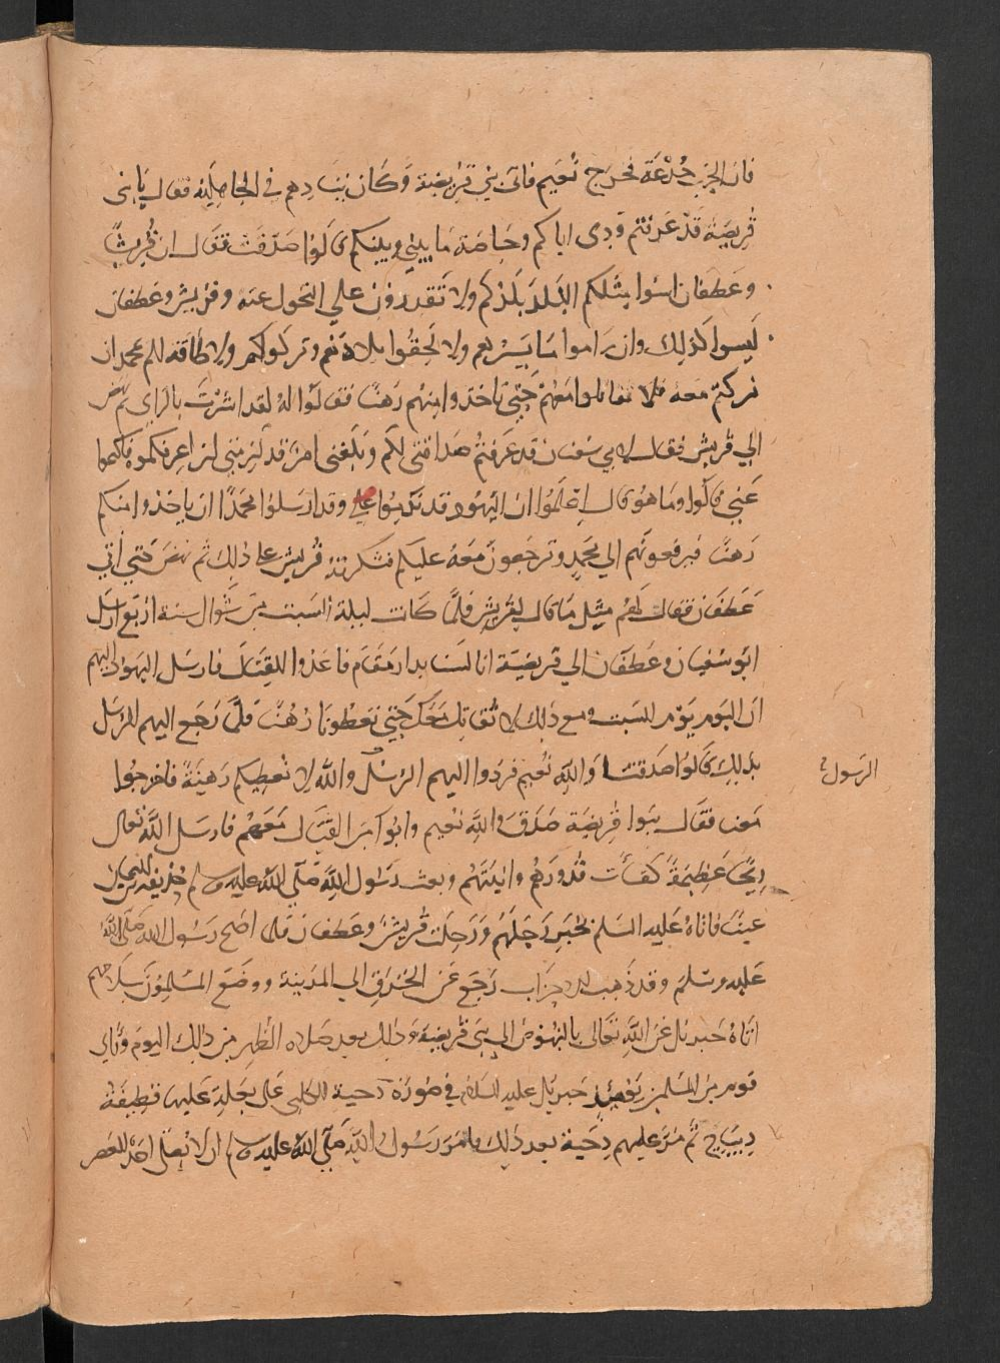 فان الحرب خدعة فخرج نعيم فاتى بني قريظة وكان ينادمهم في الجاهلية فقال يا بني
قريضة قد عرفتم ودي اياكم وخاصة ما بيني وبينكم قالوا صدقت فقال ان قريشًا
وغطفان ليسوا مثلكم البلد بلدكم ولا تقدرون علي التحول عنه وقريش وغطفان
ليسوا كذلك وان راموا ما يسرهم ولا لحقوا ببلادهم وتركوكم ولا طاقة لكم بمحمد ان
تركتم معه فلا تقاتلوا معهم حتى تاخذوا منهم رهنًا فقالوا له لقد اشرت بالراي ثم نهض
الي قريش فقال لابي سفيان قد عرفتم صداقتي لكم وبلغني امر قد لزمني ان اعرفكموه فاكتموا
عني قالوا وما هو قال اعلموا ان اليهود قد نكبوا علي وقد ارسلوا محمدًا ان ياخذوا منكم
رهنًا فيرفعونهم الي محمد وترجعون معه عليكم فشكرته قريش على ذلك ثم نهض حتي اتي
غطفان فقال لهم مثل ما قال لقريش فلما كانت ليلة السبت من شوال سنة اربع ارسل
ابو سفيان وغطفان الي قريضة انا لسنا بدار مقام فاغدوا للقتال فارسل اليهود اليهم
ان اليوم يوم السبت ومع ذلك لا نقاتل معكم حتي تعطونا رهنًا فلما رجع اليهم الرسل
بذلك قالوا صدقنا والله نعيم فردوا اليهم الرسل والله لا نعطيكم رهينة فاخرجوا
الرسول
معنا فقال بنوا قريضة صدق والله نعيم وابوا من القتال معهم فارسل الله تعالى
ريحًا عظيمةً كفأت قدورهم وانيتهم وبعث رسول الله صلى الله عليه وسلم حذيفة بن اليمان
عينًا فاتاه عليه السلم بخبر رحلهم ورحلت قريش وغطفان فلما اصبح رسول الله صلى الله
عليه وسلم وقد ذهب الاحزاب رجع عن الخندق الي المدينة ووضع المسلمون سلاحهم
اتاه جبريل عن الله تعالى بالنهوض الى بني قريضة وذلك بعد صلاه الظهر من ذلك اليوم وراي
قوم من المسلمين يومئذ جبريل عليه السلام في صورة دحية الكلبي على بغلة عليها قطيفة
ديباج ثم مر عليهم دحية بعد ذلك فامر رسول الله صلى الله عليه وسلم ان لا يصلى احد العصر